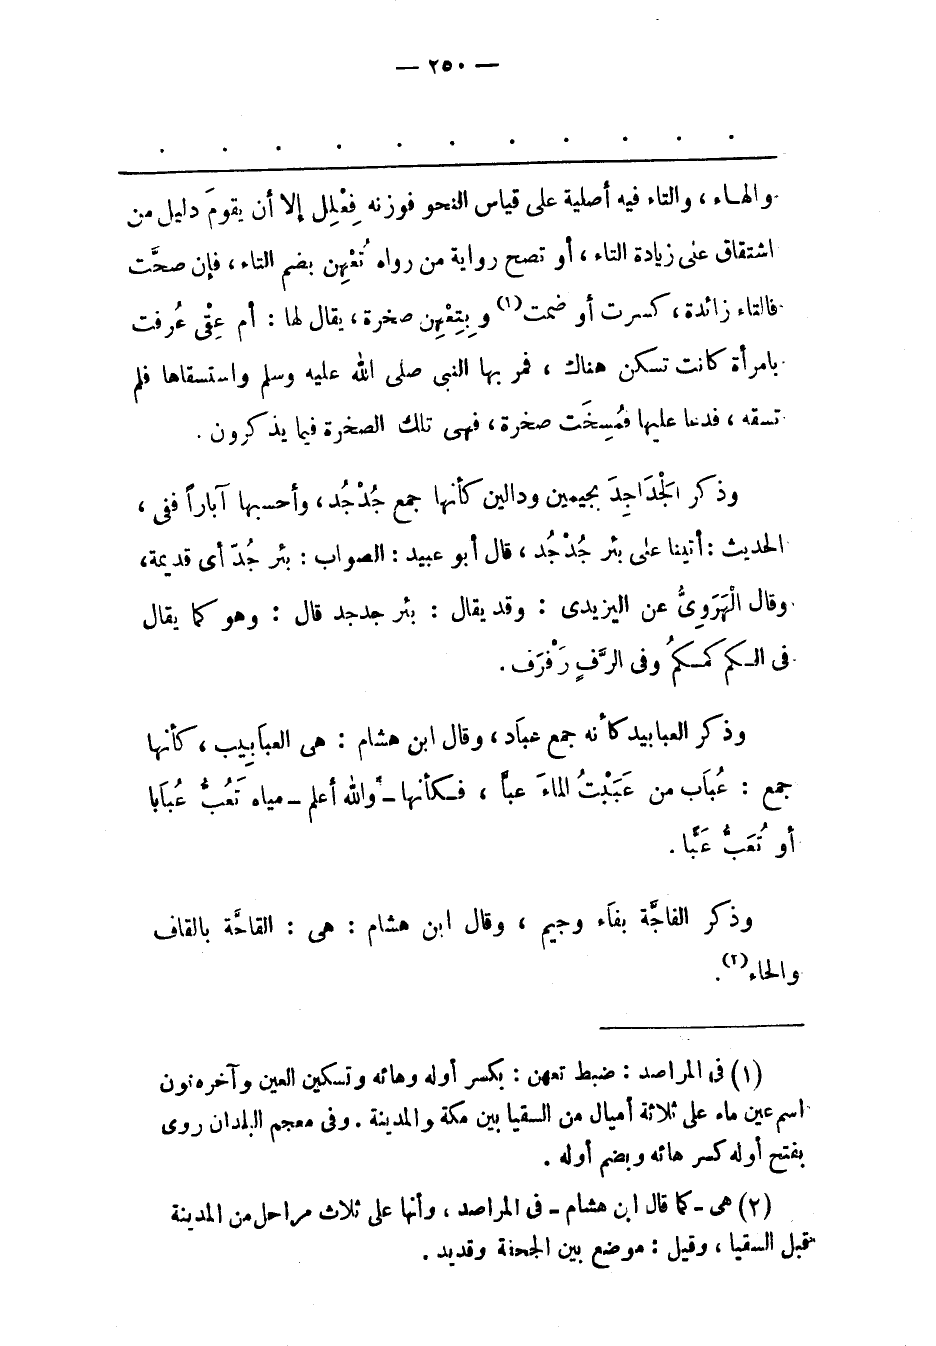 — ٢٥٠ —
. . . . . . . . . . .
والهاء ، والتاء فيه أصلية على قياس النحو فوزنه فِعْلِل إلا أن يقومَ دليل من
اشتقاق على زيادة التاء ، أو تصح رواية من رواه تُعْهِن بضم التاء ، فإن صحَّت
فالتاء زائدة ، كسرت أو ضمت(١) وبِتِعْهِن صخرة ، يقال لها : أم عِقْى عُرفت
بامرأة كانت تسكن هناك ، فمر بها النبى صلى الله عليه وسلم واستسقاها فلم
تسقه ، فدعا عليها فمُسِخَت صخرة ، فهى تلك الصخرة فيما يذكرون .
وذكر الجَدَاجِدَ بجيمين ودالين كأنها جمع جُدْجُد ، وأحسبها آباراً ففى ،
الحديث : أتينا على بئر جُدْجُد ، قال أبو عبيد : الصواب : بئر جُدّ أى قديمة ،
وقال الْهَرَوِىُّ عن اليزيدى : وقد يقال : بئر جدجد قال : وهو كما يقال
فى الكم كمكمُ وفى الرَّفِّ رَفْرَف .
وذكر العبابيد كأنه جمع عبَاد ، وقال ابن هشام : هى العبَابِيب ، كأنها
جمع : عُبَاب من عَبَبْتُ الماءَ عباًّ ، فكأنها - والله أعلم - مياه تَعُبُّ عُبَابا
أو تُعَبُّ عَبًّا .
وذكر الفاجَّة بفاء وجيم ، وقال ابن هشام : هى : القاحَّة بالقاف
والحاء(٢) .
(١) فى المراصد : ضبط تعهن : بكسر أوله وهائه وتسكين العين وآخره نون
اسم عين ماء على ثلاثة أميال من السقيا بين مكة والمدينة . وفى معجم البلدان روى
بفتح أوله كسر هائه وبضم أوله .
(٢) هى - كما قال ابن هشام - فى المراصد ، وأنها على ثلاث مراحل من المدينة
قبل السقيا ، وقيل : موضع بين الجحفة وقديد .